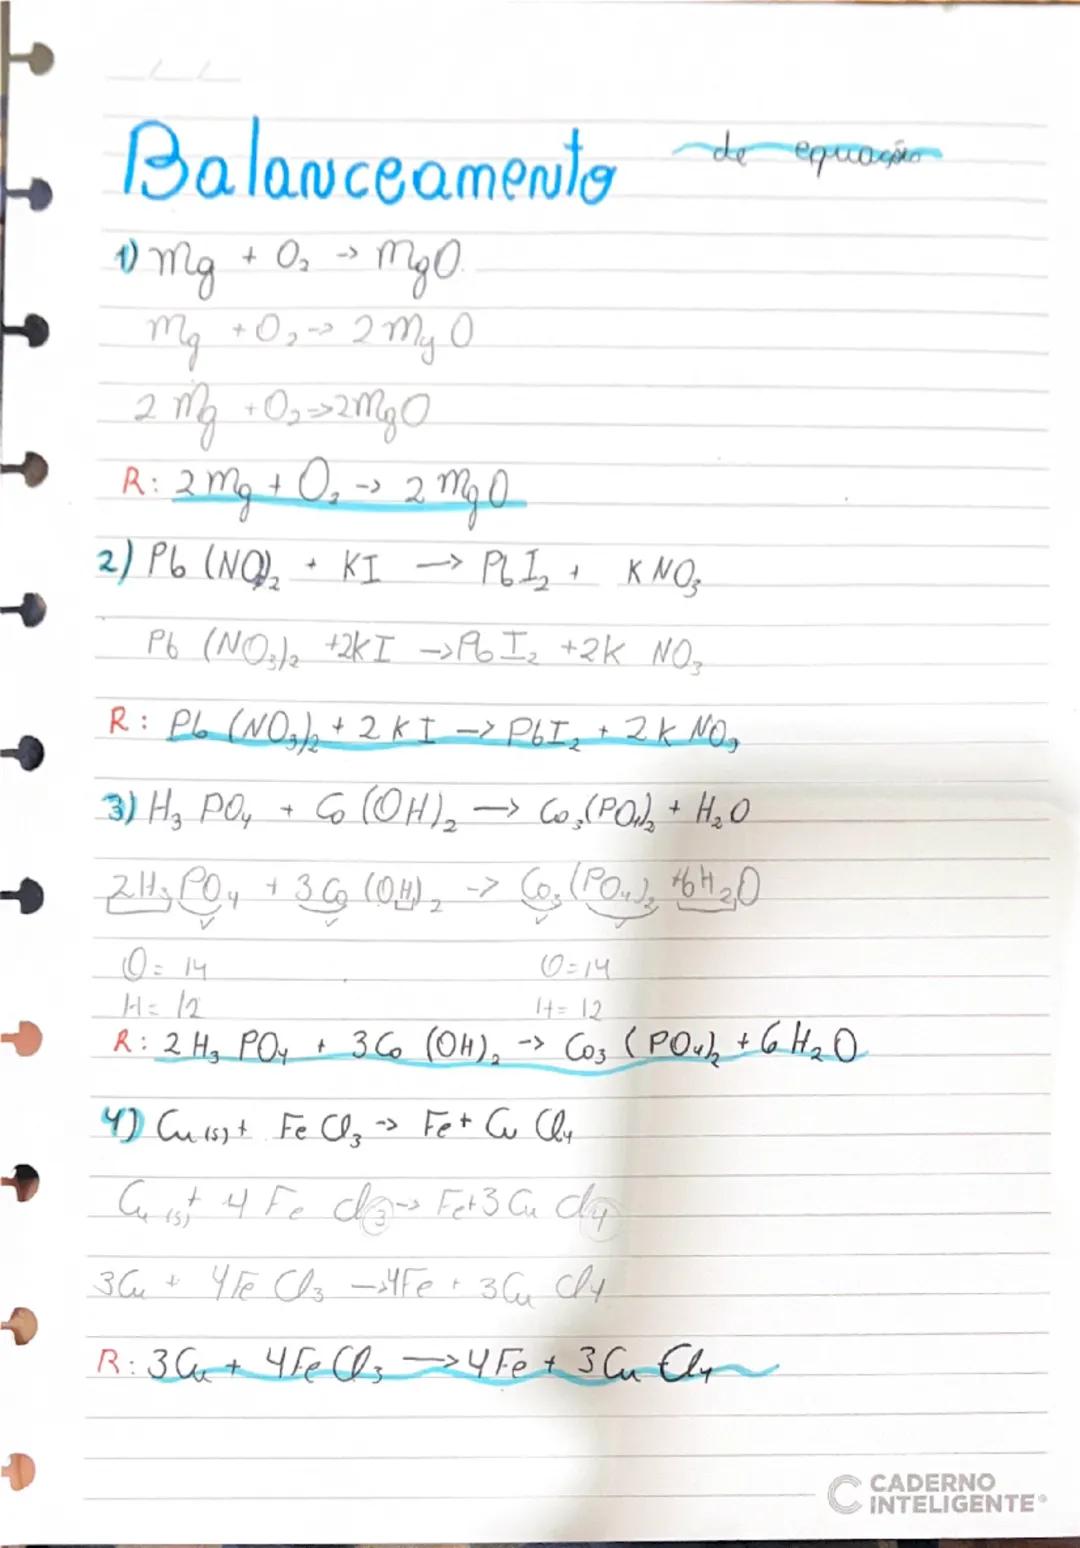 Balanceamento de equação
1) Mg + O₂ -> MgO
Mg + O₂ -> 2 MgO
2 Mg + O₂ => 2MgO
R: 2 Mg + O₂ -> 2 MgO
2) Pb (NO₃)₂ + KI -> PbI₂ + KNO₃
Pb (NO₃)₂ +2KI -> PbI₂ +2K NO₃
R: Pb (NO₃)₂ + 2 KI -> PbI₂ + 2K NO₃
3) H₃ PO₄ + Co (OH)₂ -> Co₃(PO₄)₂ + H₂O
2H₃ PO₄ + 3 Co (OH)₂ -> Co₃ (PO₄)₂ +6H₂O
O = 14 O = 14
H = 12 H = 12
R: 2 H₃ PO₄ + 3 Co (OH)₂ -> Co₃ (PO₄)₂ + 6 H₂O
4) Cu (s) + Fe Cl₃ -> Fe + Cu Cl₄
Cu (s) + 4 Fe Cl₃ -> Fe + 3 Cu Cl₄
3Cu + 4Fe Cl₃ -> 4Fe + 3 Cu Cl₄
R: 3 Cu + 4Fe Cl₃ -> 4 Fe + 3 Cu Cl₄
CADERNO
INTELIGENTE®